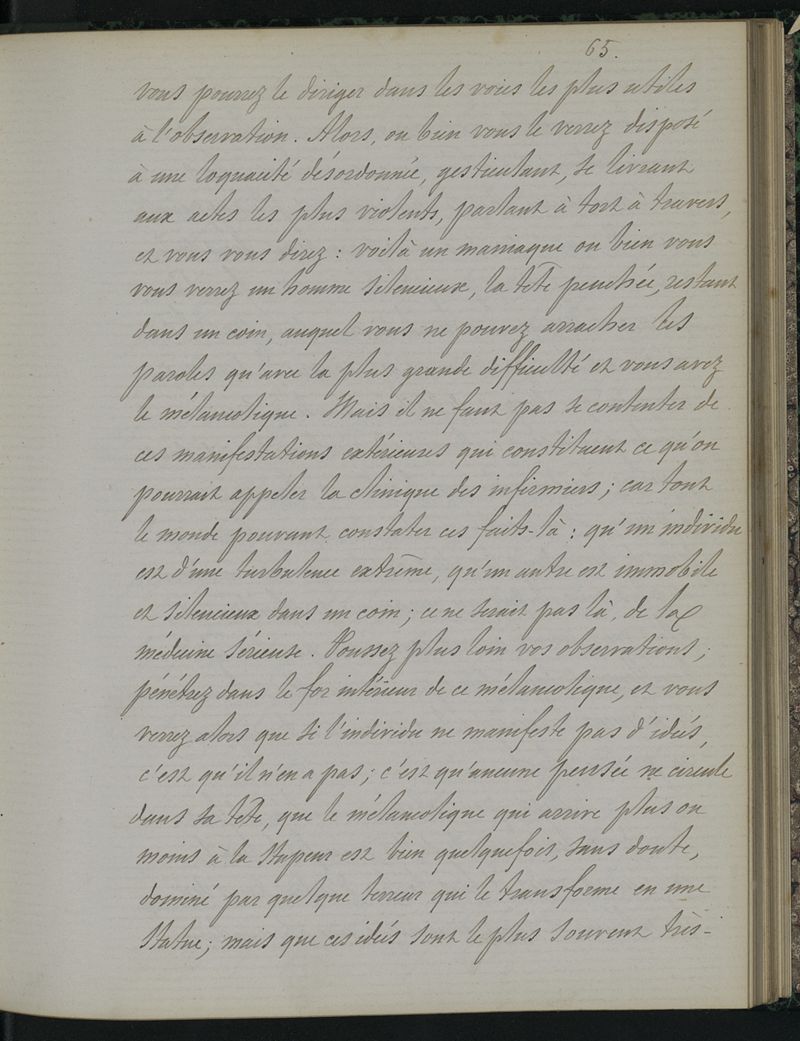 65.
vous pourrez le diriger dans les voies les plus utiles
à l'observation. Alors, ou bien vous le verrez disposé
à une loquacité désordonnée, gesticulant, se livrant
aux actes les plus violents, parlant à tort à travers,
et vous vous direz : voilà un maniaque ou bien vous
vous verrez un homme silencieux, la tête penchée, restant
dans un coin, auquel vous ne pouvez arracher les
paroles qu'avec la plus grande difficulté et vous avez
le mélancolique. Mais il ne faut pas se contenter de
ces manifestations extérieures qui constituent ce qu'on
pourrait appeler la clinique des infirmiers ; car tout
le monde pouvant constater ces faits-là : qu'un individu
est d'une turbulence extrême, qu'un autre est immobile
et silencieux dans un coin ; ce ne serait pas là, de la
médecine sérieuse. Poussez plus loin vos observations ;
pénétrez dans le for intérieur de ce mélancolique, et vous
verrez alors que si l'individu ne manifeste pas d'idées,
c'est qu'il n'en a pas ; c'est qu'aucune pensée ne circule
dans sa tête, que le mélancolique qui arrive plus ou
moins à la stupeur est bien quelquefois, sans doute,
dominé par quelque terreur qui le transforme en une
statue ; mais que ces idées sont le plus souvent très-